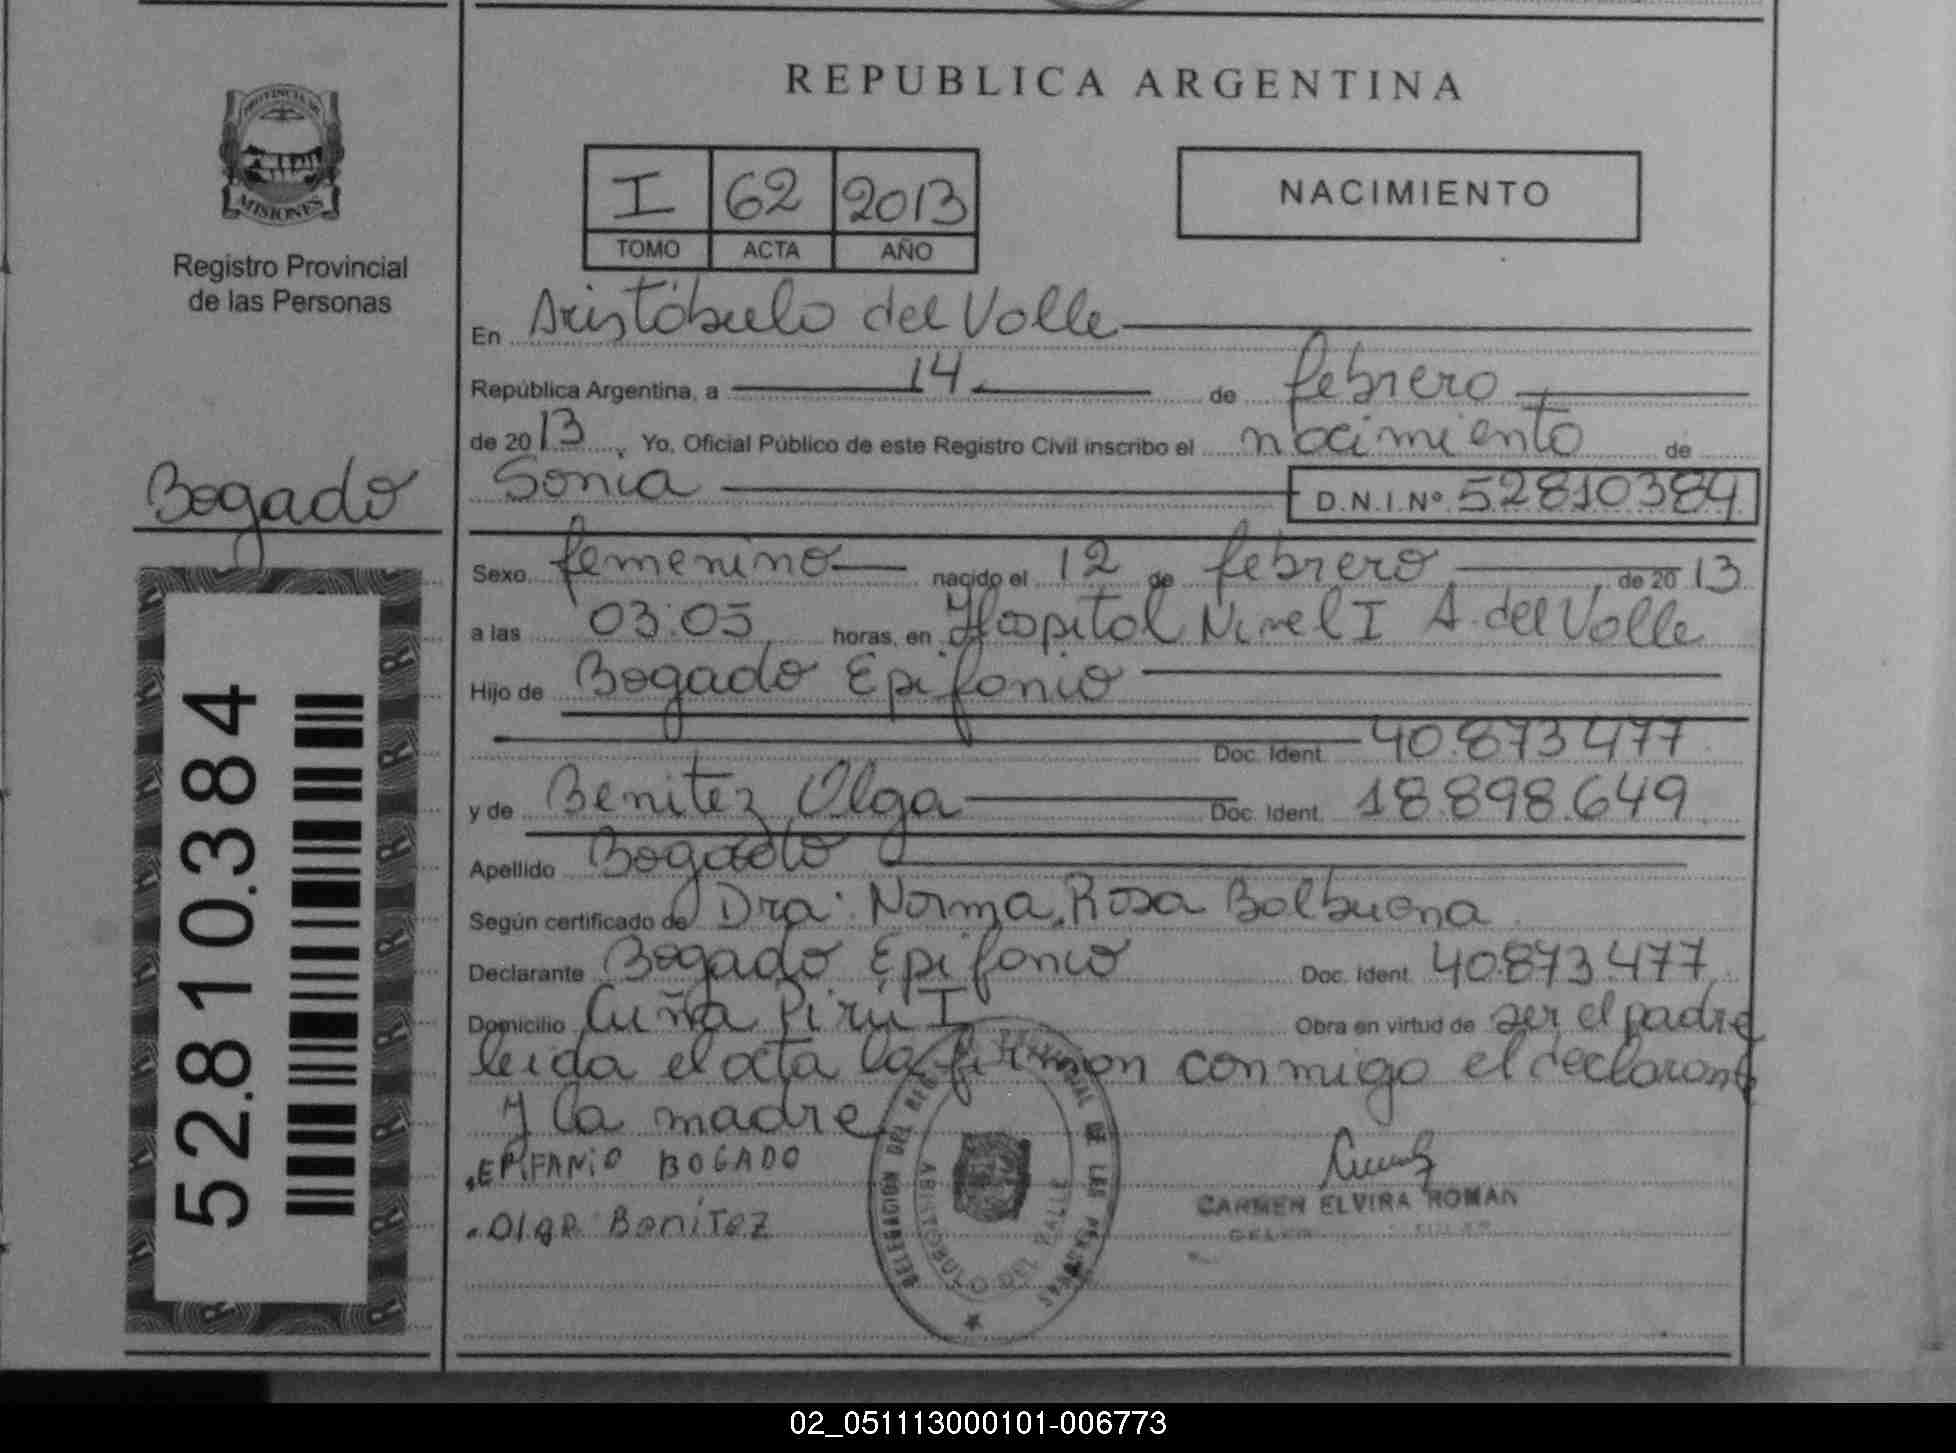 REPUBLICA ARGENTINA
PROVINCIA DE
MISIONES
Registro Provincial
de las Personas
I 62 2013
TOMO ACTA AÑO
NACIMIENTO
En Aristóbulo del Valle
República Argentina, a 14 de febrero
de 2013, Yo, Oficial Público de este Registro Civil inscribo el nacimiento de
Bogado
Sonia D.N.I.Nº 52810384
Sexo femenino nacido el 12 de febrero de 2013
a las 03:05 horas, en Hospital Nivel I A. del Valle
Hijo de Bogado Epifanio
Doc. Ident. 40.873477
y de Benitez Olga Doc. Ident. 18.898.649
Apellido Bogado
Según certificado de Dra: Norma Rosa Balbuena
Declarante Bogado Epifanio Doc. Ident. 40.873.477
Domicilio Cuña Pirú I Obra en virtud de ser el padre
leida el acta la firman conmigo el declarante
y la madre
EPIFANIO BOGADO
Olga Benítez
52.810.384
DELEGACION DEL REGISTRO PROVINCIAL DE LAS PERSONAS
ARISTOBULO DEL VALLE
CARMEN ELVIRA ROMAN
02_051113000101-006773